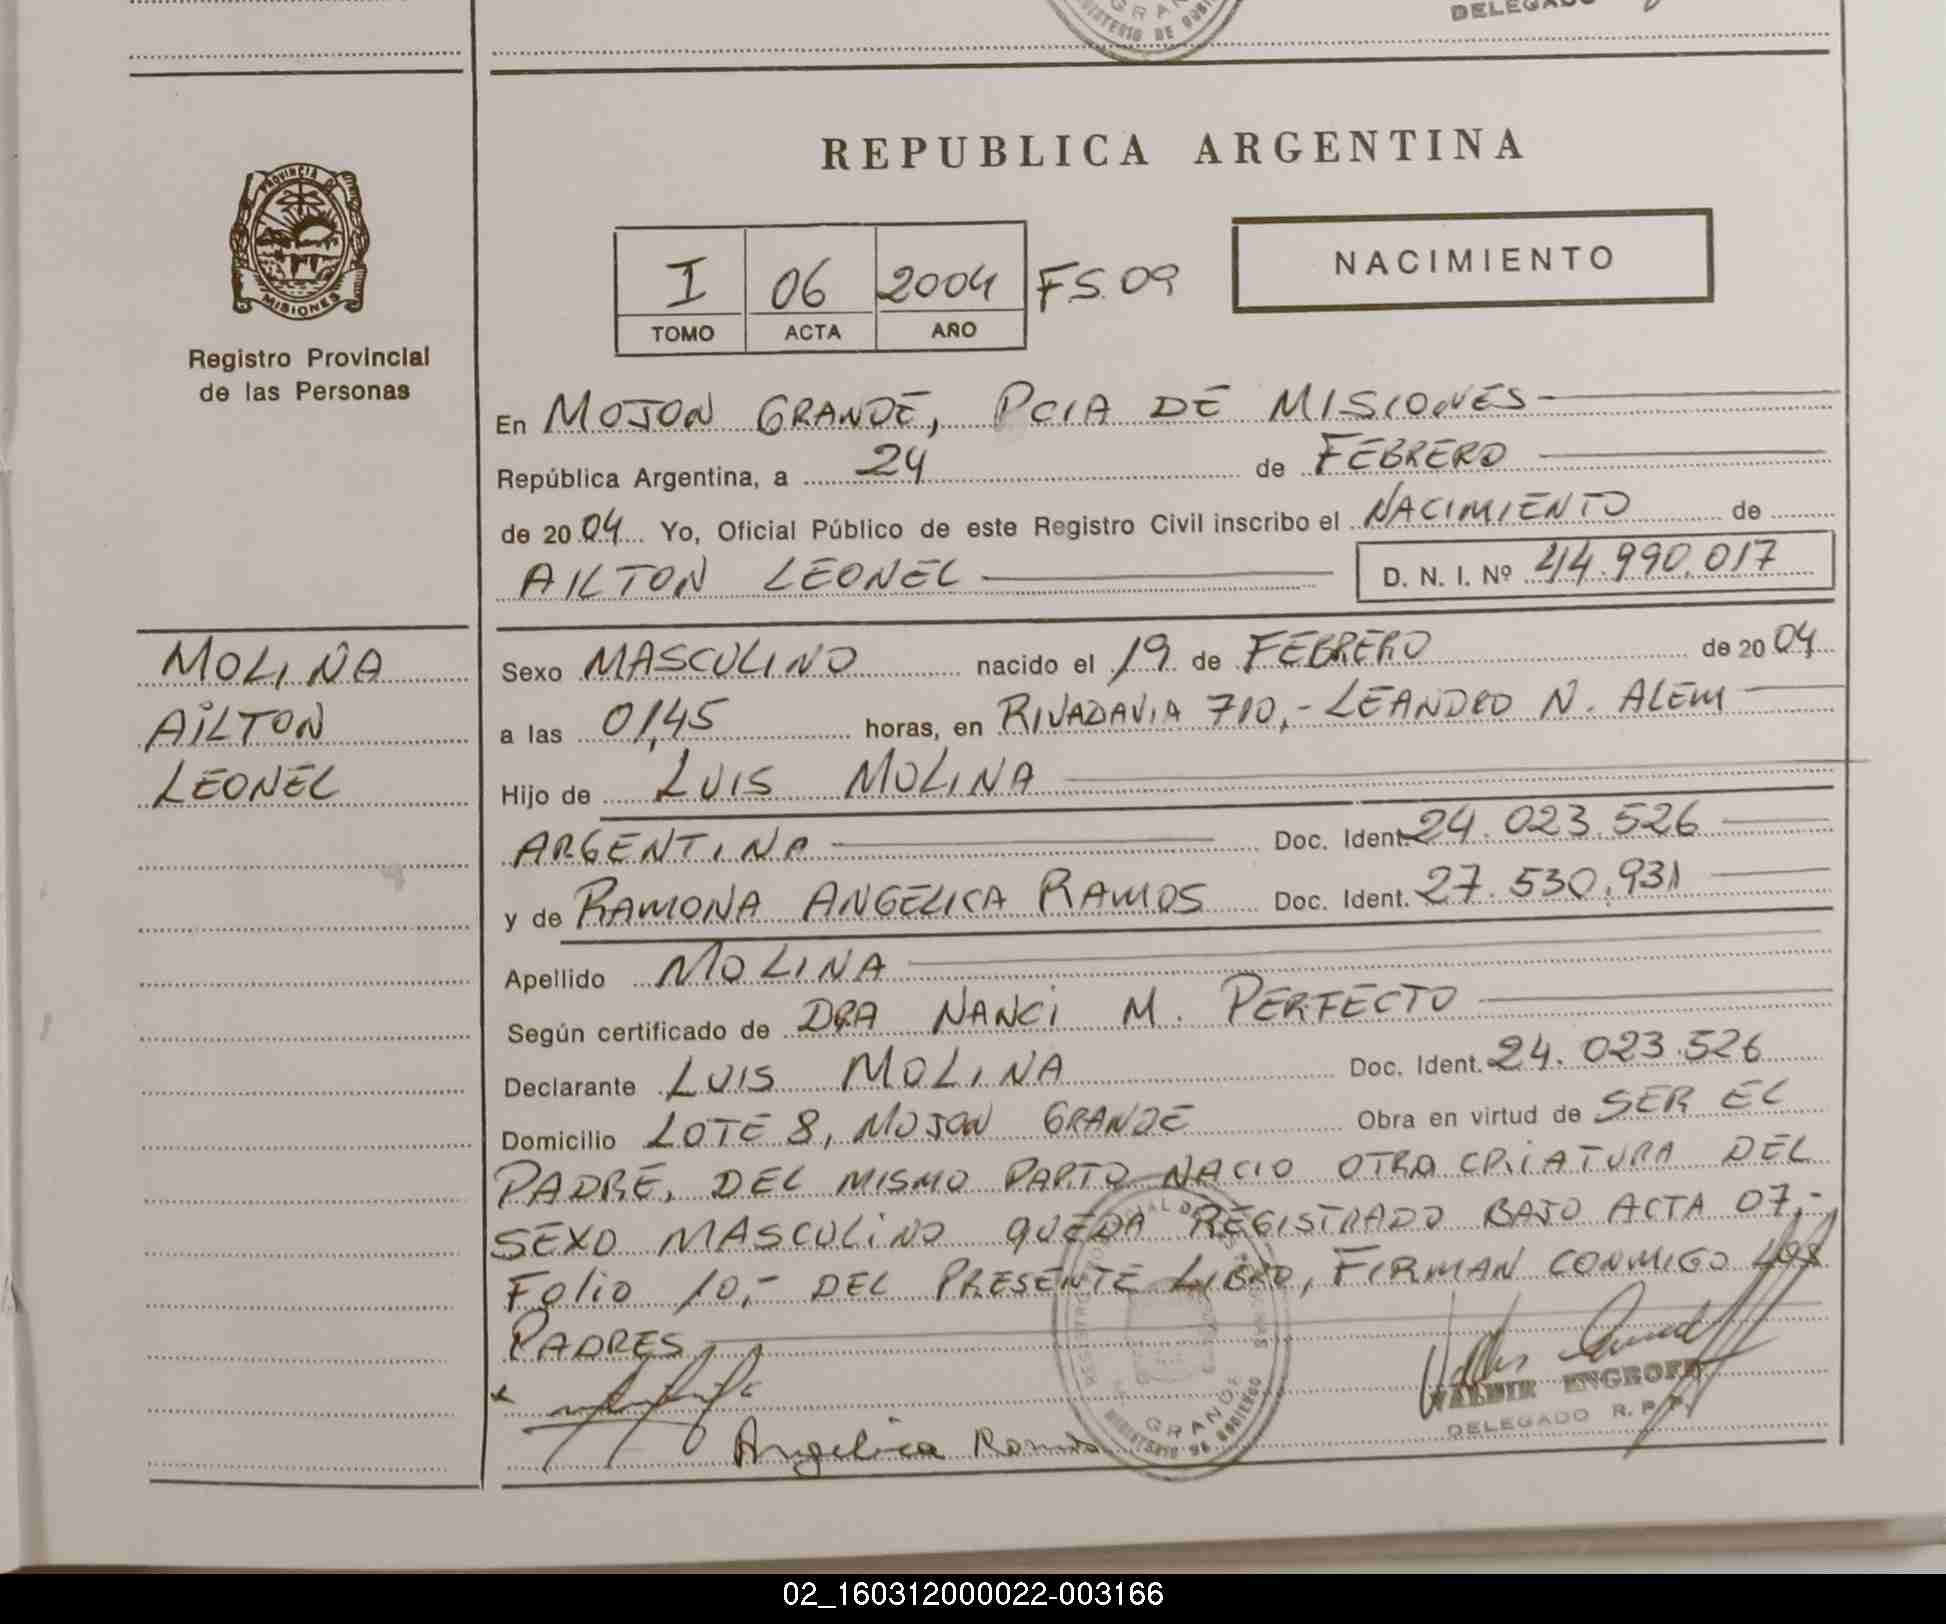 DELEGADO
GRAN
MINISTERIO DE GOBI
REPUBLICA ARGENTINA
PROVINCIA DE
MISIONES
Registro Provincial
de las Personas
I 06 2004 FS.09
TOMO ACTA AÑO
NACIMIENTO
En MOJON GRANDE, PCIA DE MISIONES
República Argentina, a 24 de FEBRERO
de 2004 Yo, Oficial Público de este Registro Civil inscribo el NACIMIENTO de
AILTON LEONEL D. N. I. Nº 44.990.017
MOLINA
AILTON
LEONEL
Sexo MASCULINO nacido el 19 de FEBRERO de 2004
a las 01,45 horas, en RIVADAVIA 710,- LEANDRO N. ALEM
Hijo de LUIS MOLINA
ARGENTINA Doc. Ident. 24.023.526
y de RAMONA ANGELICA RAMOS Doc. Ident. 27.530.931
Apellido MOLINA
Según certificado de DRA NANCI M. PERFECTO
Declarante LUIS MOLINA Doc. Ident. 24.023.526
Domicilio LOTE 8, MOJON GRANDE Obra en virtud de SER EL
PADRE, DEL MISMO PARTO NACIO OTRA CRIATURA DEL
SEXO MASCULINO QUEDA REGISTRADO BAJO ACTA 07,-
FOLIO 10,- DEL PRESENTE LIBRO, FIRMAN CONMIGO LOS
PADRES
Angelica Ramos
GRANDE
MINISTERIO DE GOBIERNO
DELEGADO R. P. P.
02_160312000022-003166